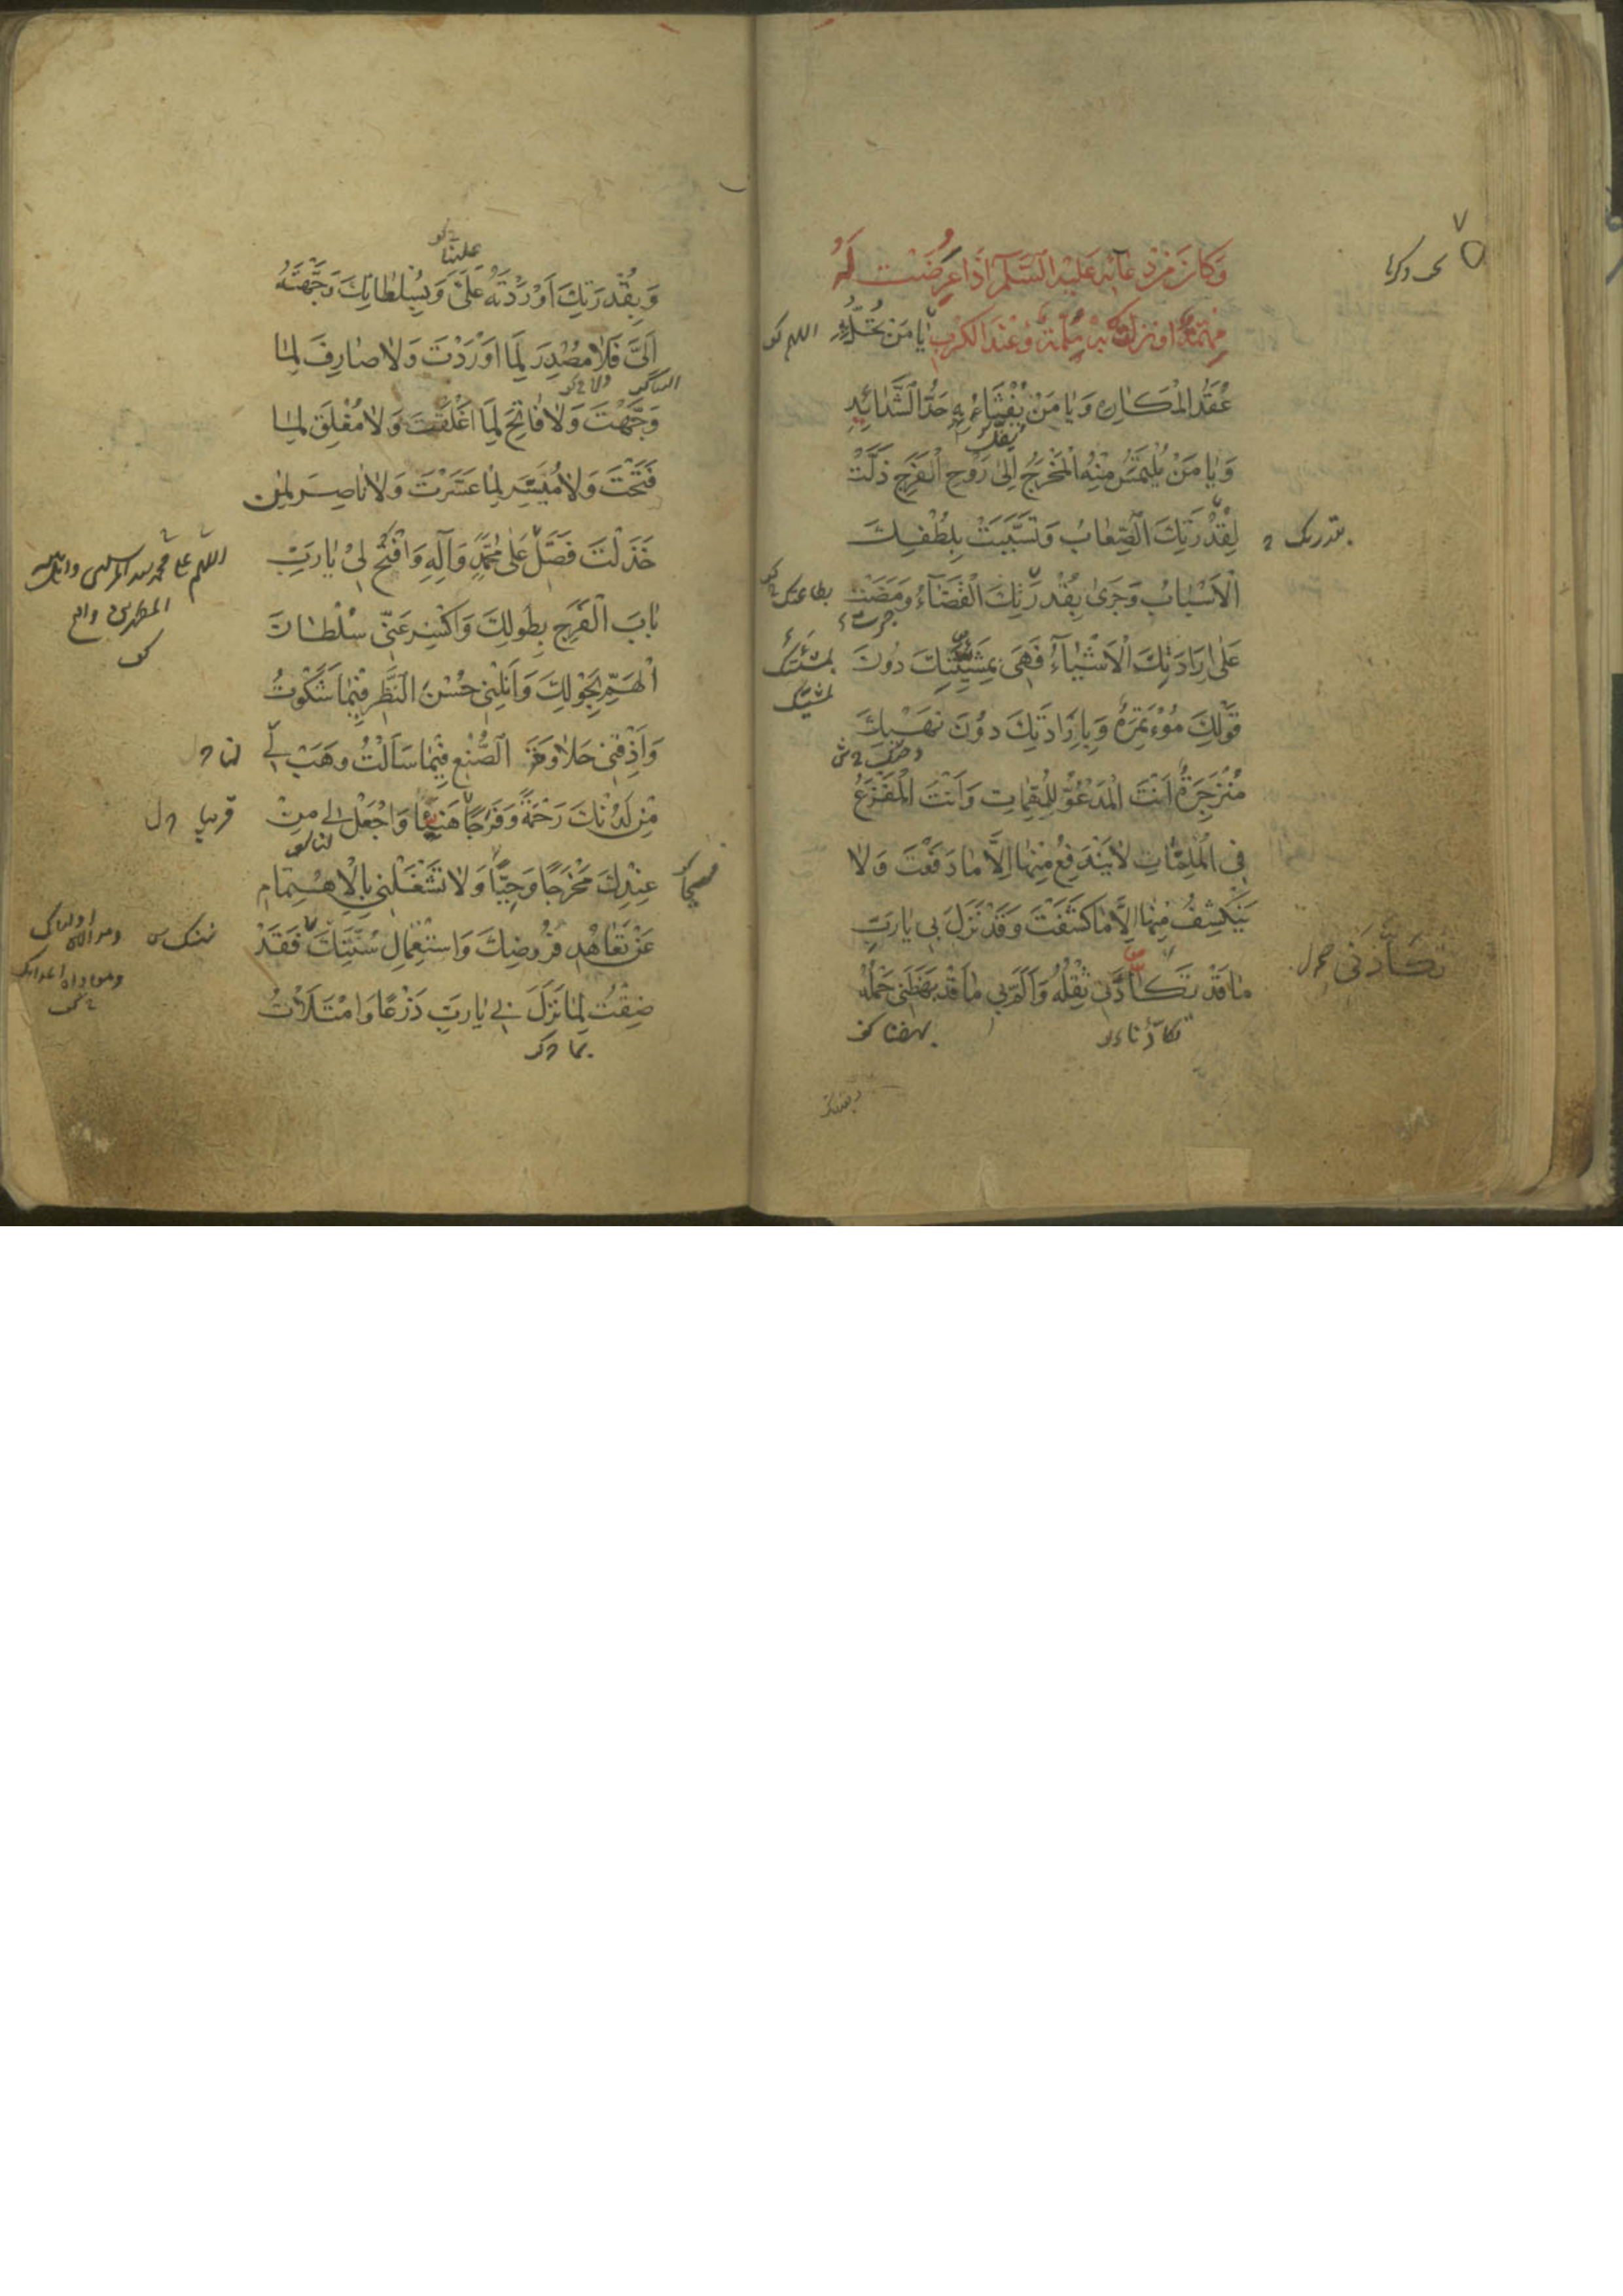 وَكَانَ مِنْ دُعَائِهِ عَلَيْهِ السَّلَمُ اِذَا عَرَضَتْ لَهُ
مُهِمَّةٌ اَوْ نَزَلَتْ بِهِ مُلِمَّةٌ وَعِنْدَ الْكَرْبِ يَا مَنْ تُحَلُّ بِهِ
عُقَدُ الْمَكَارِهِ وَيَا مَنْ يُفْثَاءُ بِهِ حَدُّ الشَّدَائِدِ
وَيَا مَنْ يُلْتَمَسُ مِنْهُ الْمَخْرَجُ اِلٰى رَوْحِ الْفَرَجِ ذَلَّتْ
لِقُدْرَتِكَ الصِّعَابُ وَتَسَبَّبَتْ بِلُطْفِكَ
الْاَسْبَابُ وَجَرٰى بِقُدْرَتِكَ الْقَضَآءُ وَمَضَتْ
عَلٰى اِرَادَتِكَ الْاَشْيَآءُ فَهِىَ بِمَشِيَّتِكَ دُونَ
قَوْلِكَ مُؤْتَمِرَةٌ وَبِاِرَادَتِكَ دُونَ نَهْيِكَ
مُنْزَجِرَةٌ اَنْتَ الْمَدْعُوُّ لِلْمُهِمَّاتِ وَاَنْتَ الْمَفْزَعُ
فِى الْمُلِمَّاتِ لَا يَنْدَفِعُ مِنْهَا اِلَّا مَا دَفَعْتَ وَلَا
يَنْكَشِفُ مِنْهَا اِلَّا مَا كَشَفْتَ وَقَدْ نَزَلَ بِى يَا رَبِّ
مَا قَدْ تَكَأَّدَنِى ثِقْلُهُ وَاَلَمَّ بِى مَا قَدْ بَهَظَنِى حَمْلُهُ
بقدرتك
تكأدنى
وَبِقُدْرَتِكَ اَوْرَدْتَهُ عَلَىَّ وَبِسُلْطَانِكَ وَجَّهْتَهُ
علينا
اِلَىَّ فَلَا مُصْدِرَ لِمَا اَوْرَدْتَ وَلَا صَارِفَ لِمَا
وَجَّهْتَ وَلَا فَاتِحَ لِمَا اَغْلَقْتَ وَلَا مُغْلِقَ لِمَا
فَتَحْتَ وَلَا مُيَسِّرَ لِمَا عَسَّرْتَ وَلَا نَاصِرَ لِمَنْ
خَذَلْتَ فَصَلِّ عَلٰى مُحَمَّدٍ وَآلِهِ وَافْتَحْ لِىْ يَا رَبِّ
بَابَ الْفَرَجِ بِطَوْلِكَ وَاكْسِرْ عَنِّى سُلْطَانَ
الْهَمِّ بِحَوْلِكَ وَاَنِلْنِى حُسْنَ النَّظَرِ فِيمَا شَكَوْتُ
وَاَذِقْنِى حَلَاوَةَ الصُّنْعِ فِيمَا سَاَلْتُ وَهَبْ لِى
مِنْ لَدُنْكَ رَحْمَةً وَفَرَجًا هَنِيئًا وَاجْعَلْ لِى مِنْ
عِنْدِكَ مَخْرَجًا وَحِيًّا وَلَا تَشْغَلْنِى بِالْاِهْتِمَامِ
عَنْ تَعَاهُدِ فُرُوضِكَ وَاسْتِعْمَالِ سُنَّتِكَ فَقَدْ
ضِقْتُ لِمَا نَزَلَ بِى يَا رَبِّ ذَرْعًا وَامْتَلَأْتُ